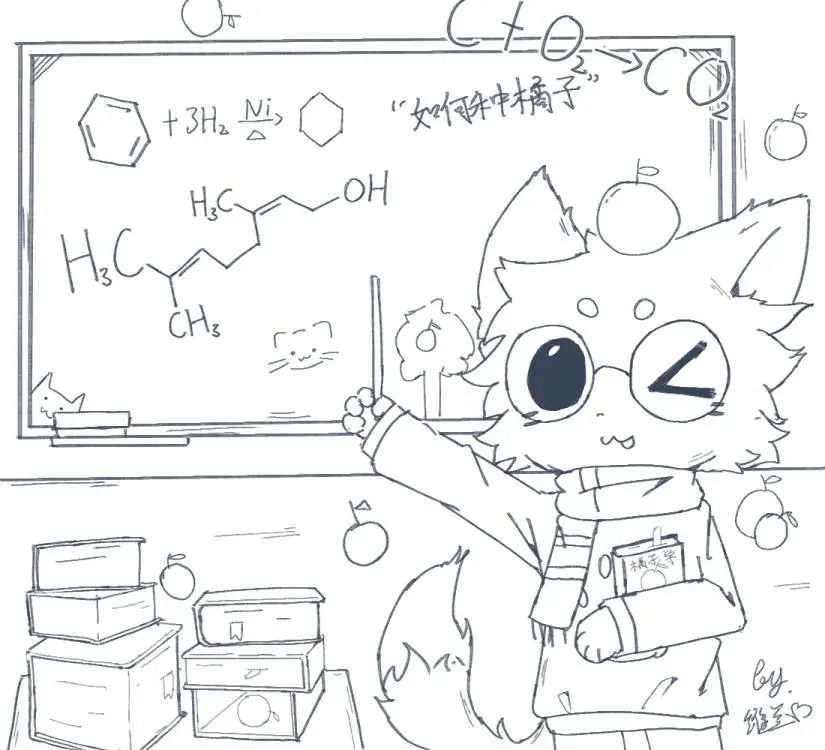 C+O₂→CO₂
+3H₂ Ni △
“如何种橘子”
H₃C OH
H₃C
CH₃
橘子学
by.